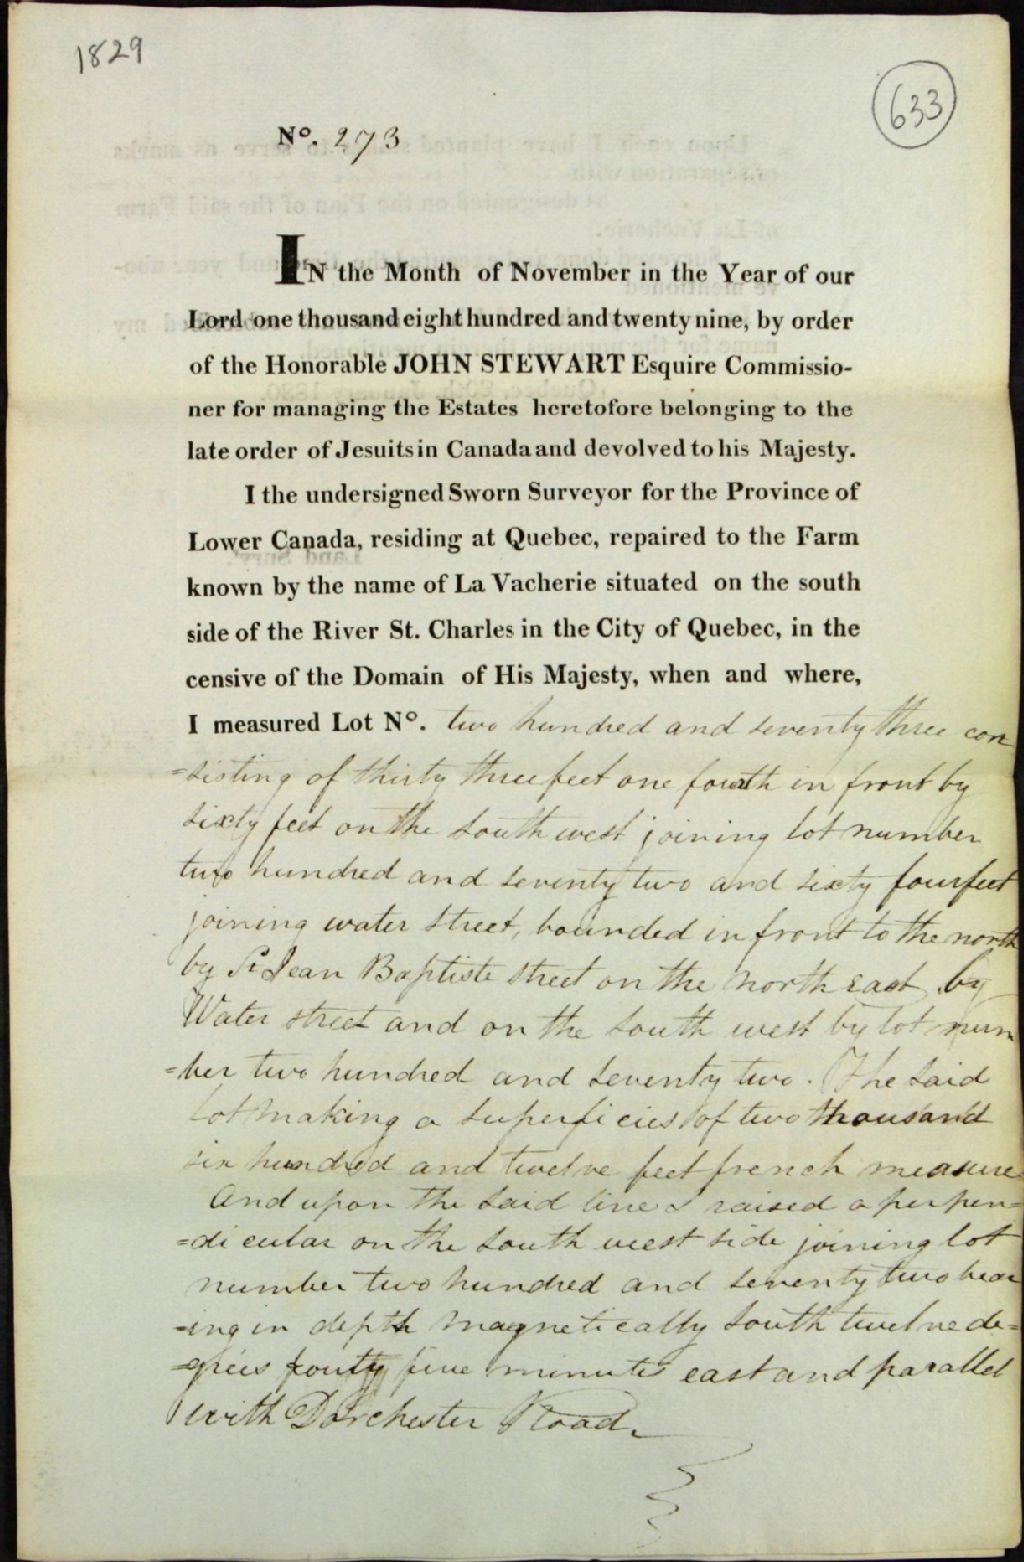 1829
633
No. 273
IN the Month of November in the Year of our
Lord one thousand eight hundred and twenty nine, by order
of the Honorable JOHN STEWART Esquire Commissio-
ner for managing the Estates heretofore belonging to the
late order of Jesuits in Canada and devolved to his Majesty.
I the undersigned Sworn Surveyor for the Province of
Lower Canada, residing at Quebec, repaired to the Farm
known by the name of La Vacherie situated on the south
side of the River St. Charles in the City of Quebec, in the
censive of the Domain of His Majesty, when and where,
I measured Lot No. two hundred and seventy three con
=sisting of thirty three feet one fourth in front by
sixty feet on the south west joining lot number
two hundred and seventy two and sixty four feet
joining water street, bounded in front to the north
by St Jean Baptiste street on the north east by
Water street and on the south west by lot num
=ber two hundred and seventy two. The said
lot making a superficies of two thousand
six hundred and twelve feet french measure
And upon the said line I raised a perpen=
=dicular on the south west side joining lot
number two hundred and seventy two bear
=ing in depth magnetically south twelve de=
=grees fourty five minutes east and parallel
with Dorchester Road.